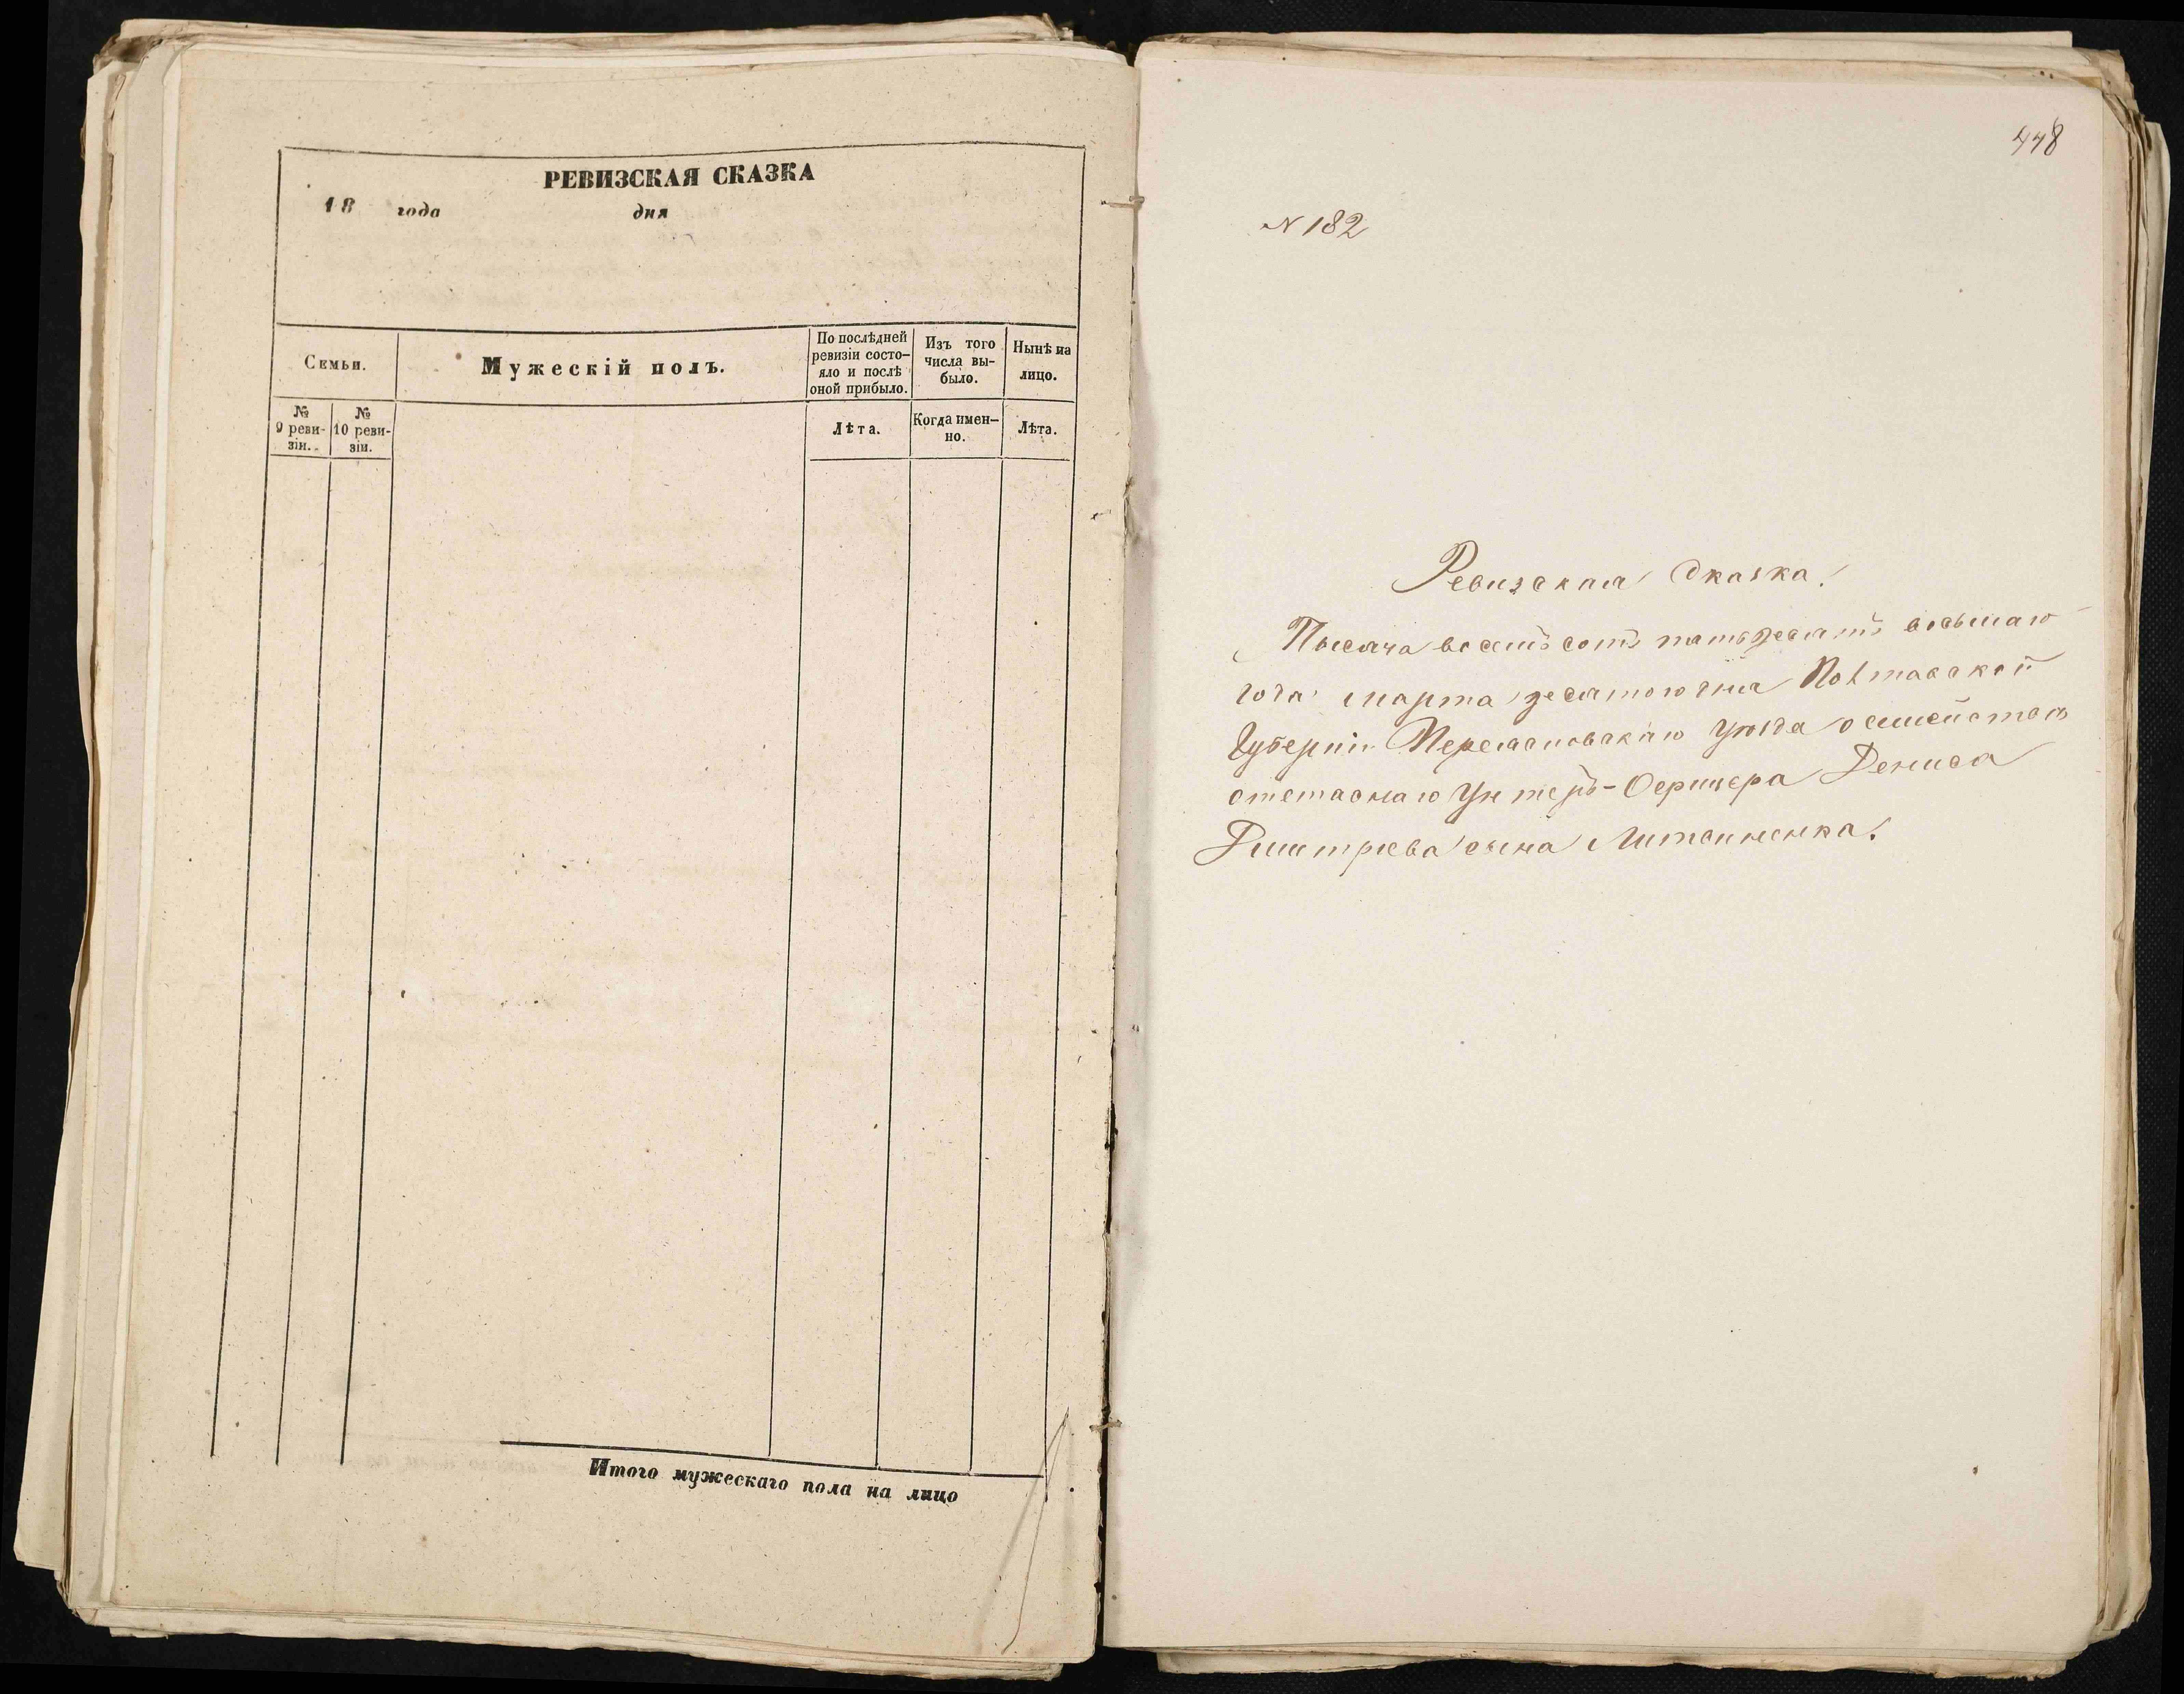 РЕВИЗСКАЯ СКАЗКА
18 года дня
Семьи.
Мужескій полъ.
По послѣдней
ревизіи состо-
яло и послѣ
оной прибыло.
Изъ того
числа вы-
было.
Нынѣ на
лицо.
№
9 реви-
зіи.
№
10 реви-
зіи.
Лѣта.
Когда имен-
но.
Лѣта.
Итого мужескаго пола на лицо
448
№ 182
Ревизская Сказка.
Тысяча восемъ сотъ патьдесятъ восьмаго
года марта десятого дня Полтавской
Губерніи Переяславскаго Уѣзда о семействѣ
отставнаго Унтеръ-Офицера Дениса
Дмитріева сына